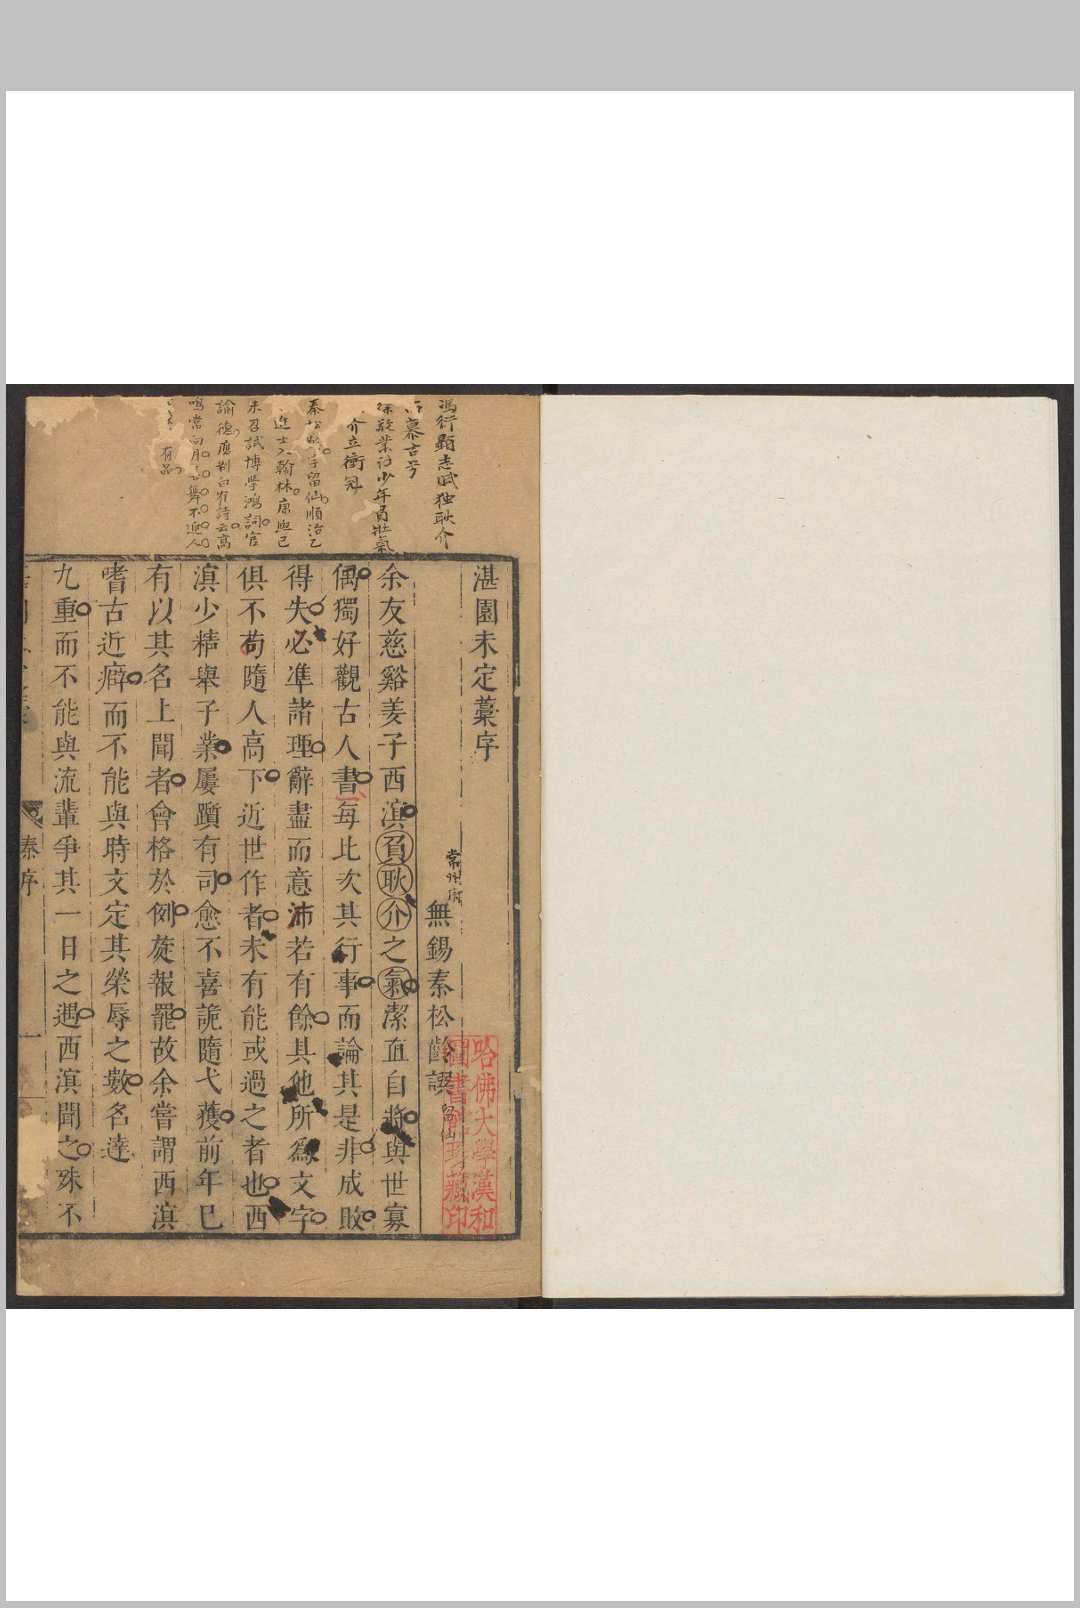 馮衍顯志賦独耿介
慕古兮
敬業 少年員壯氣
介立衝冠
秦松齡字留仙順治乙
進士入翰林康熙己
未召試博學鴻詞官
諭德
鳴 常向月 舞不逐人
有品
湛園未定藁序
常州府
無錫秦松齡譔
留仙
余友慈谿姜子西溟負耿介之氣潔直自將與世寡
偶獨好觀古人書每比次其行事而論其是非成敗
得失必準諸理辭盡而意沛若有餘其他所為文字
俱不苟隨人高下近世作者未有能或過之者也西
溟少精舉子業屢躓有司愈不喜詭隨弋獲前年巳
有以其名上聞者會格於例旋報罷故余嘗謂西溟
嗜古近癖而不能與時文定其榮辱之數名達
九重而不能與流輩爭其一日之遇西溟聞之殊不
秦序
一
哈佛大學漢和
圖書館珍藏印